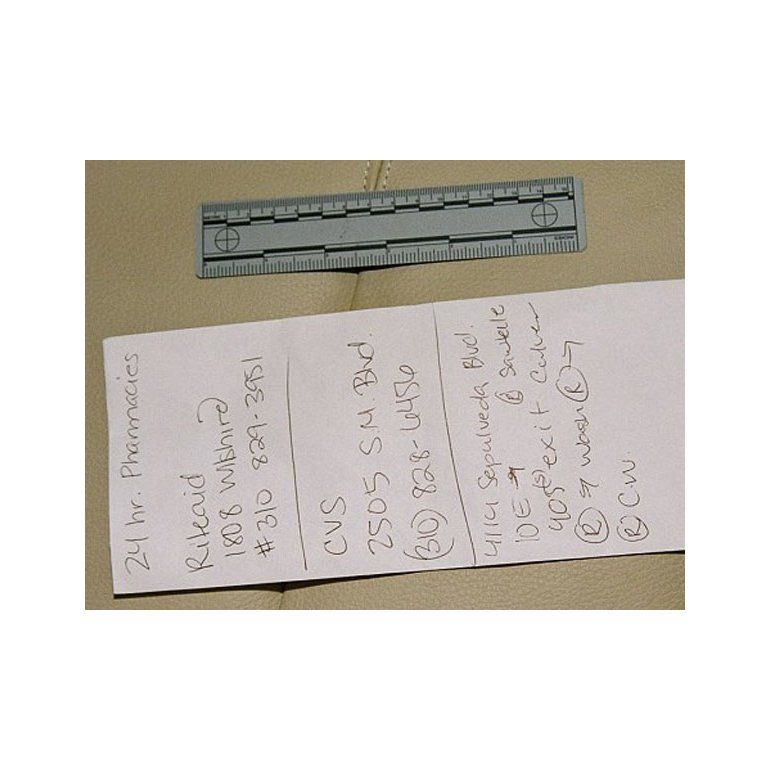 24 hr. Pharmacies
Riteaid
1808 Wilshire
#310 829-3951
CVS
2505 S.M. Blvd.
(310) 828-6456
4114 Sepulveda Blvd.
10 E → @ Sawtelle
405 (S) exit Culver
(R) → Wash (R) →
(R) C.W.